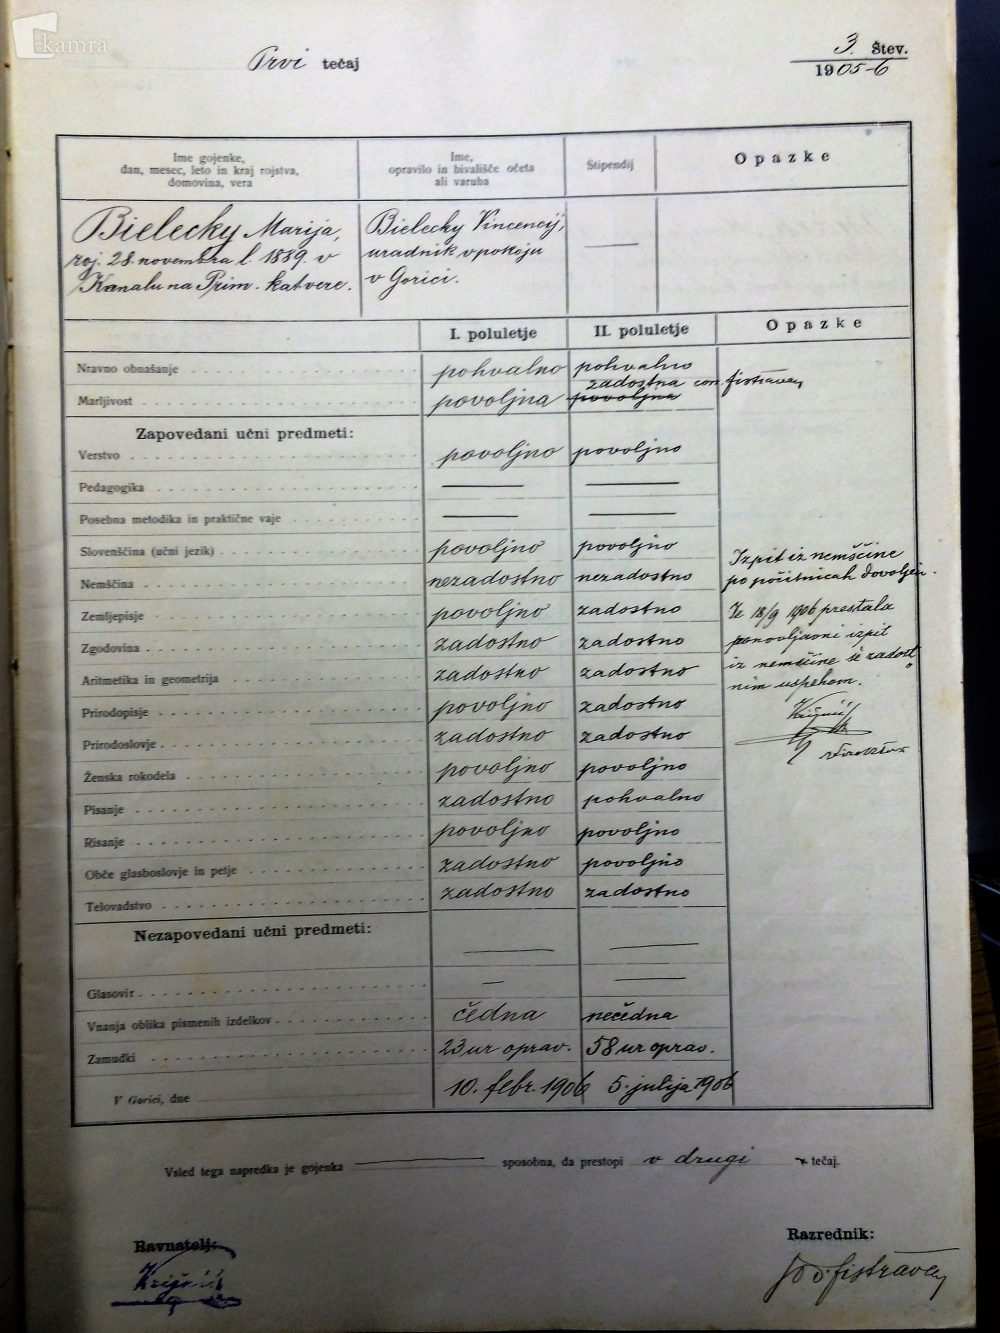 kamra
Prvi tečaj
3. Štev.
1905-6
Ime gojenke,
dan, mesec, leto in kraj rojstva,
domovina, vera
Ime,
opravilo in bivališče očeta
ali varuha
Stipendij
Opazke
Bielecky Marija,
roj. 28. novembra l. 1889. v
Kanalu na Prim. kat. vere.
Bielecky Vincencij,
uradnik v pokoju
v Gorici.
I. poluletje II. poluletje Opazke
Nravno obnašanje pohvalno pohvalno
zadostna
Marljivost povoljna povoljna
Zapovedani učni predmeti:
Verstvo povoljno povoljno
Pedagogika
Posebna metodika in praktične vaje
Slovenščina (učni jezik) povoljno povoljno
Nemščina nezadostno nezadostno
Zemljepisje povoljno zadostno
Zgodovina zadostno zadostno
Aritmetika in geometrija zadostno zadostno
Prirodopisje povoljno zadostno
Prirodoslovje zadostno zadostno
Ženska rokodela povoljno povoljno
Pisanje zadostno pohvalno
Risanje povoljno povoljno
Obče glasboslovje in petje zadostno povoljno
Telovadstvo zadostno zadostno
Izpit iz nemščine
po počitnicah dovoljen.
Je 18/9 1906 prestala
ponovljavni izpit
iz nemščine še zadost
nim uspehom.
Nezapovedani učni predmeti:
Glasovir
Vnanja oblika pismenih izdelkov čedna nečedna
Zamudki 23 ur oprav. 58 ur oprav.
V Gorici, dne 10. febr. 1906 5. julija 1906
Vsled tega napredka je gojenka sposobna, da prestopi v drugi tečaj.
Ravnatelj:
Razrednik: